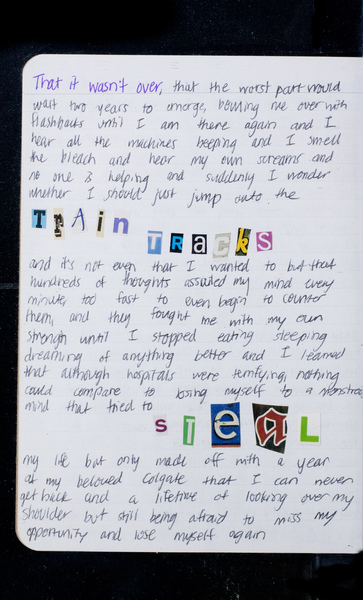 That it wasn't over, that the worst part would
wait two years to emerge, bowling me over with
flashbacks until I am there again and I
hear all the machines beeping and I smell
the bleach and hear my own screams and
no one is helping and suddenly I wonder
whether I should just jump onto the
TrAin
TRACkS
and it's not even that I wanted to but that
hundreds of thoughts assailed my mind every
minute, too fast to even begin to counter
them, and they fought me with my own
strength until I stopped eating sleeping
dreaming of anything better and I learned
that although hospitals were terrifying, nothing
could compare to losing myself to a monstrous
mind that tried to
sTeaL
my life but only made off with a year
at my beloved Colgate that I can never
get back and a lifetime of looking over my
shoulder but still being afraid to miss my
opportunity and lose myself again